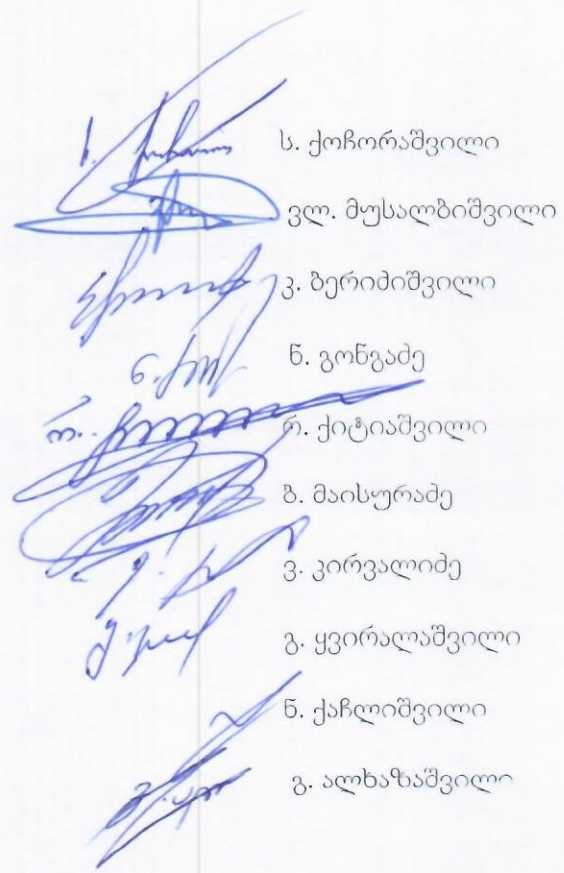 ს. ქოჩორაშვილი
ვლ. მუსალბიშვილი
კ. ბერიძიშვილი
ნ. გონგაძე
რ. ქიტიაშვილი
ბ. მაისურაძე
ვ. კირვალიძე
გ. ყვირალაშვილი
ნ. ქაჩლიშვილი
გ. ალხაზაშვილი